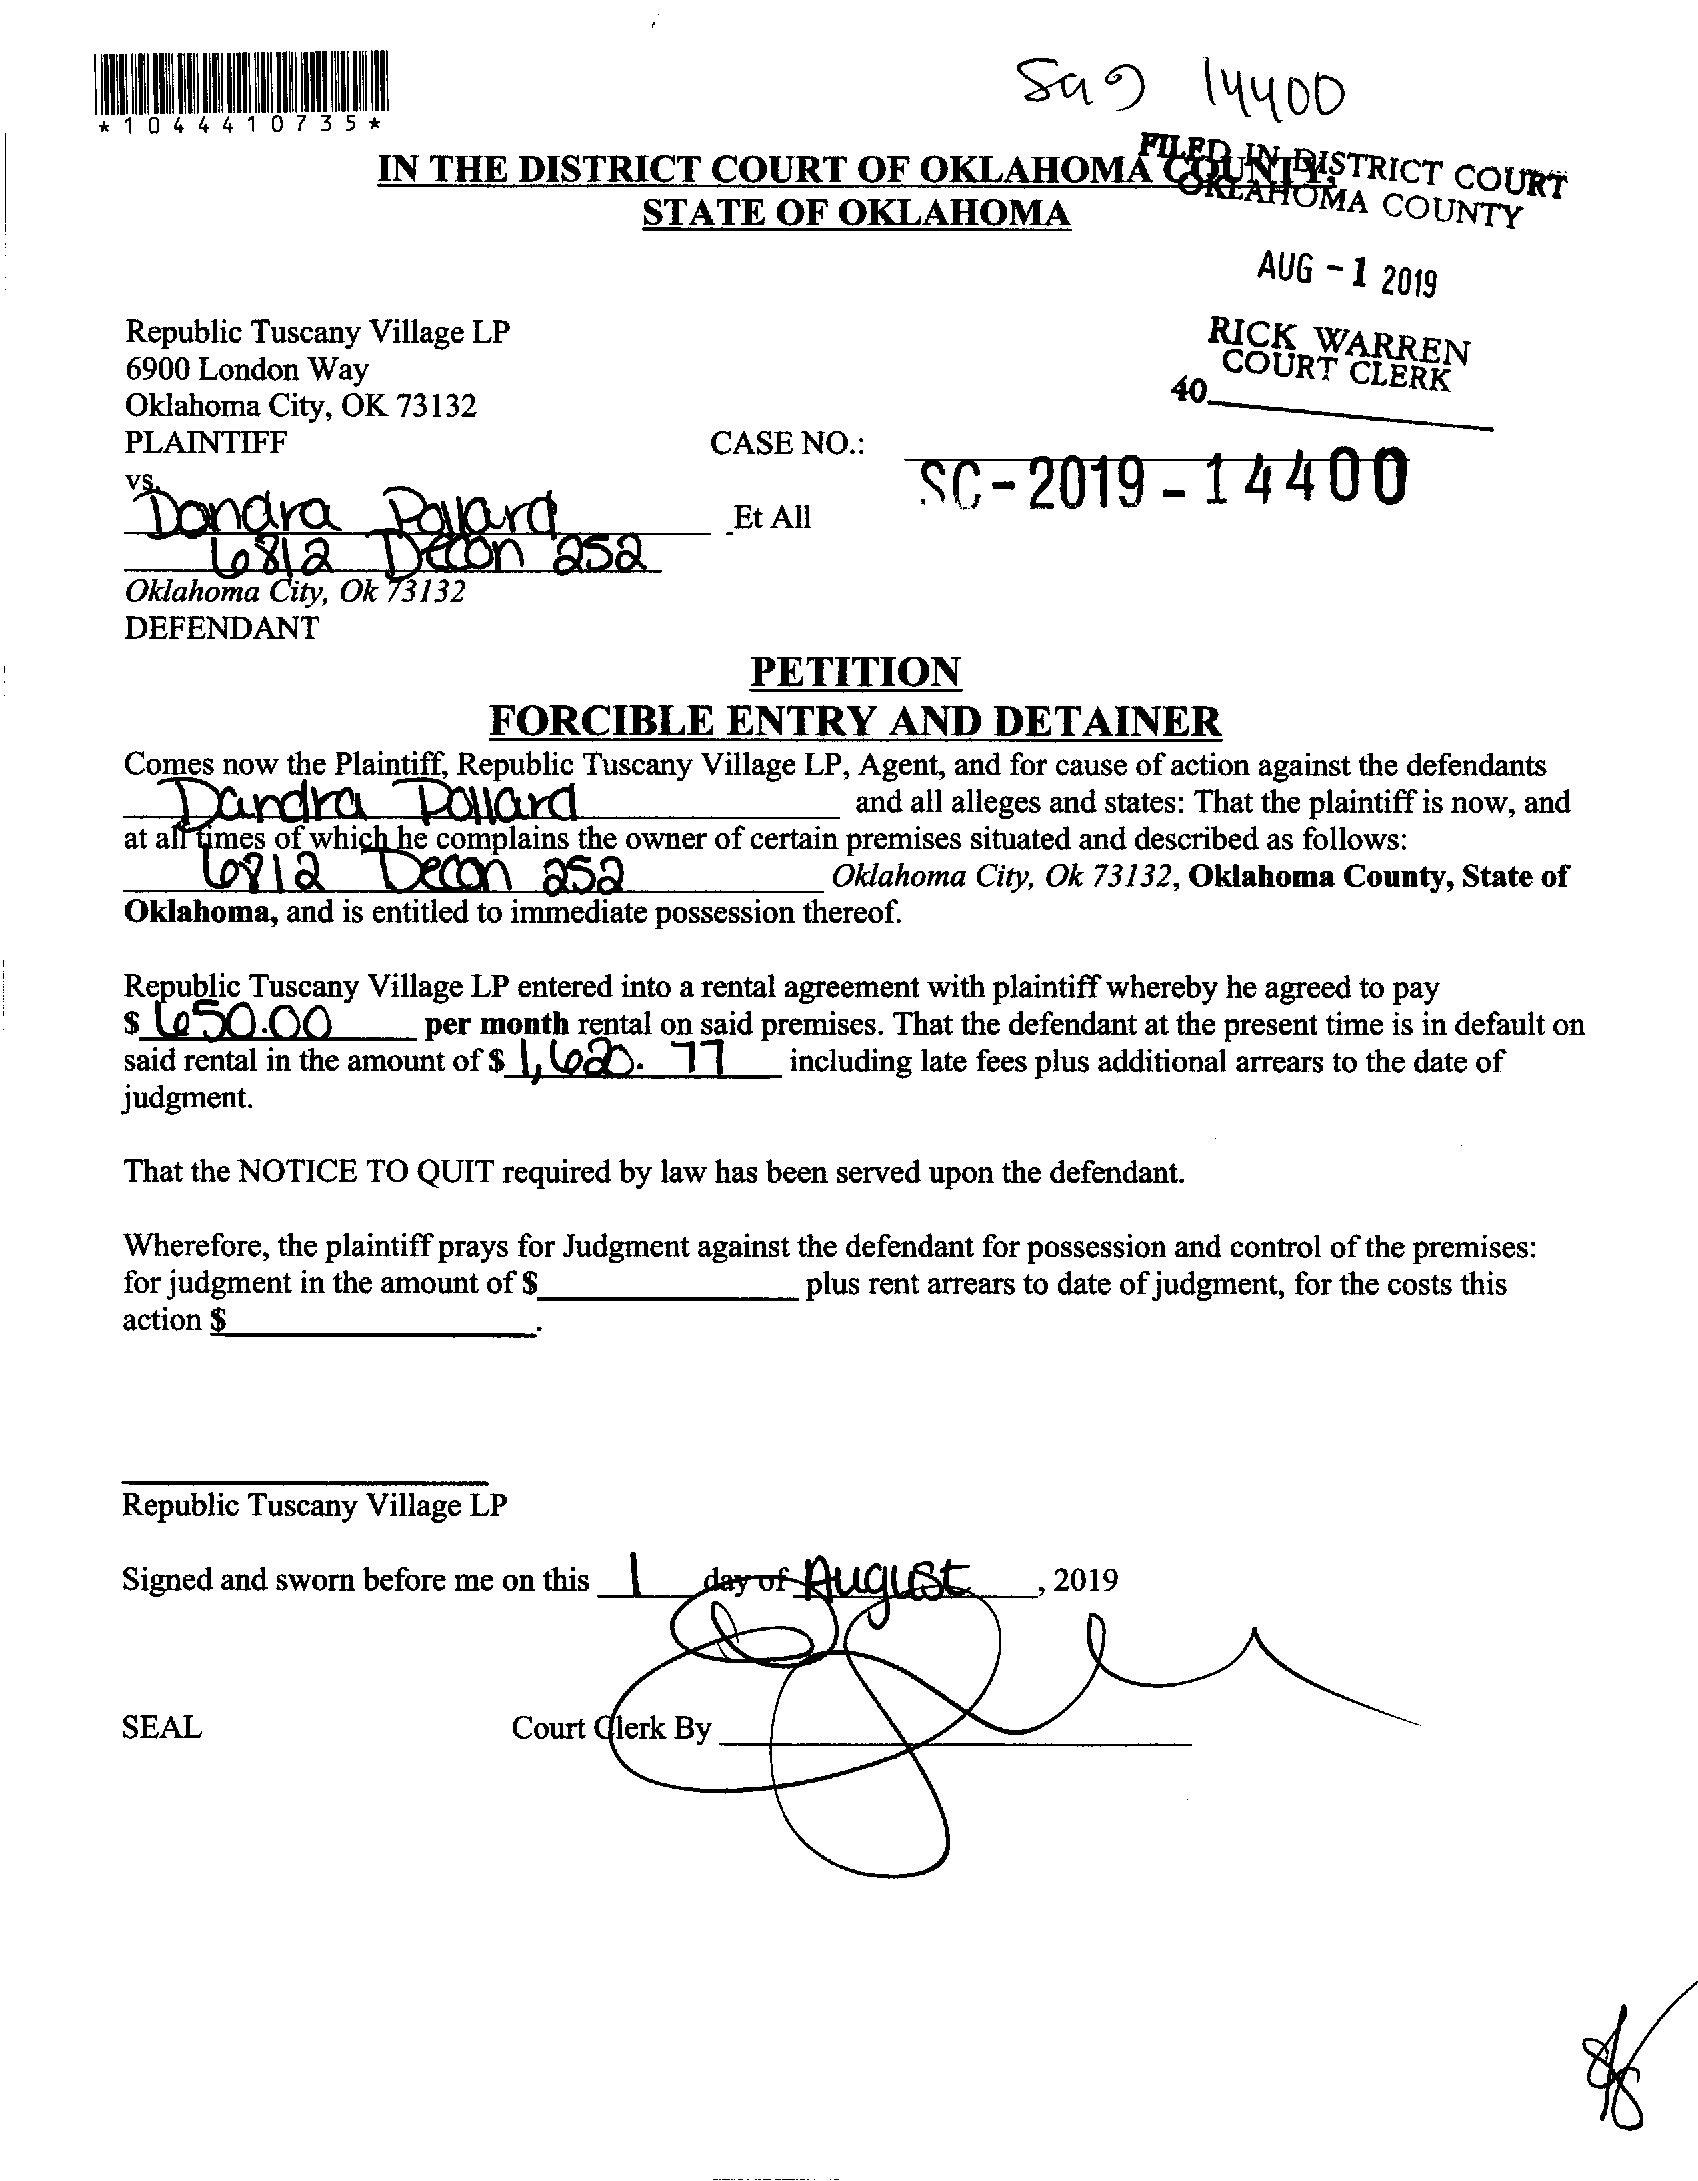 Sc19 14400
*1044410735*
IN THE DISTRICT COURT OF OKLAHOMA COUNTY,
STATE OF OKLAHOMA
FILED IN DISTRICT COURT
OKLAHOMA COUNTY
AUG -1 2019
RICK WARREN
COURT CLERK
40
Republic Tuscany Village LP
6900 London Way
Oklahoma City, OK 73132
PLAINTIFF CASE NO.: SC-2019-14400
vs.
Dandra Pollard Et All
6812 Decon 252
Oklahoma City, Ok 73132
DEFENDANT
PETITION
FORCIBLE ENTRY AND DETAINER
Comes now the Plaintiff, Republic Tuscany Village LP, Agent, and for cause of action against the defendants
Dandra Pollard and all alleges and states: That the plaintiff is now, and
at all times of which he complains the owner of certain premises situated and described as follows:
6812 Decon 252 Oklahoma City, Ok 73132, Oklahoma County, State of
Oklahoma, and is entitled to immediate possession thereof.
Republic Tuscany Village LP entered into a rental agreement with plaintiff whereby he agreed to pay
$ 650.00 per month rental on said premises. That the defendant at the present time is in default on
said rental in the amount of $ 1,620.77 including late fees plus additional arrears to the date of
judgment.
That the NOTICE TO QUIT required by law has been served upon the defendant.
Wherefore, the plaintiff prays for Judgment against the defendant for possession and control of the premises:
for judgment in the amount of $ plus rent arrears to date of judgment, for the costs this
action $ .
Republic Tuscany Village LP
Signed and sworn before me on this 1 day of August, 2019
SEAL Court Clerk By